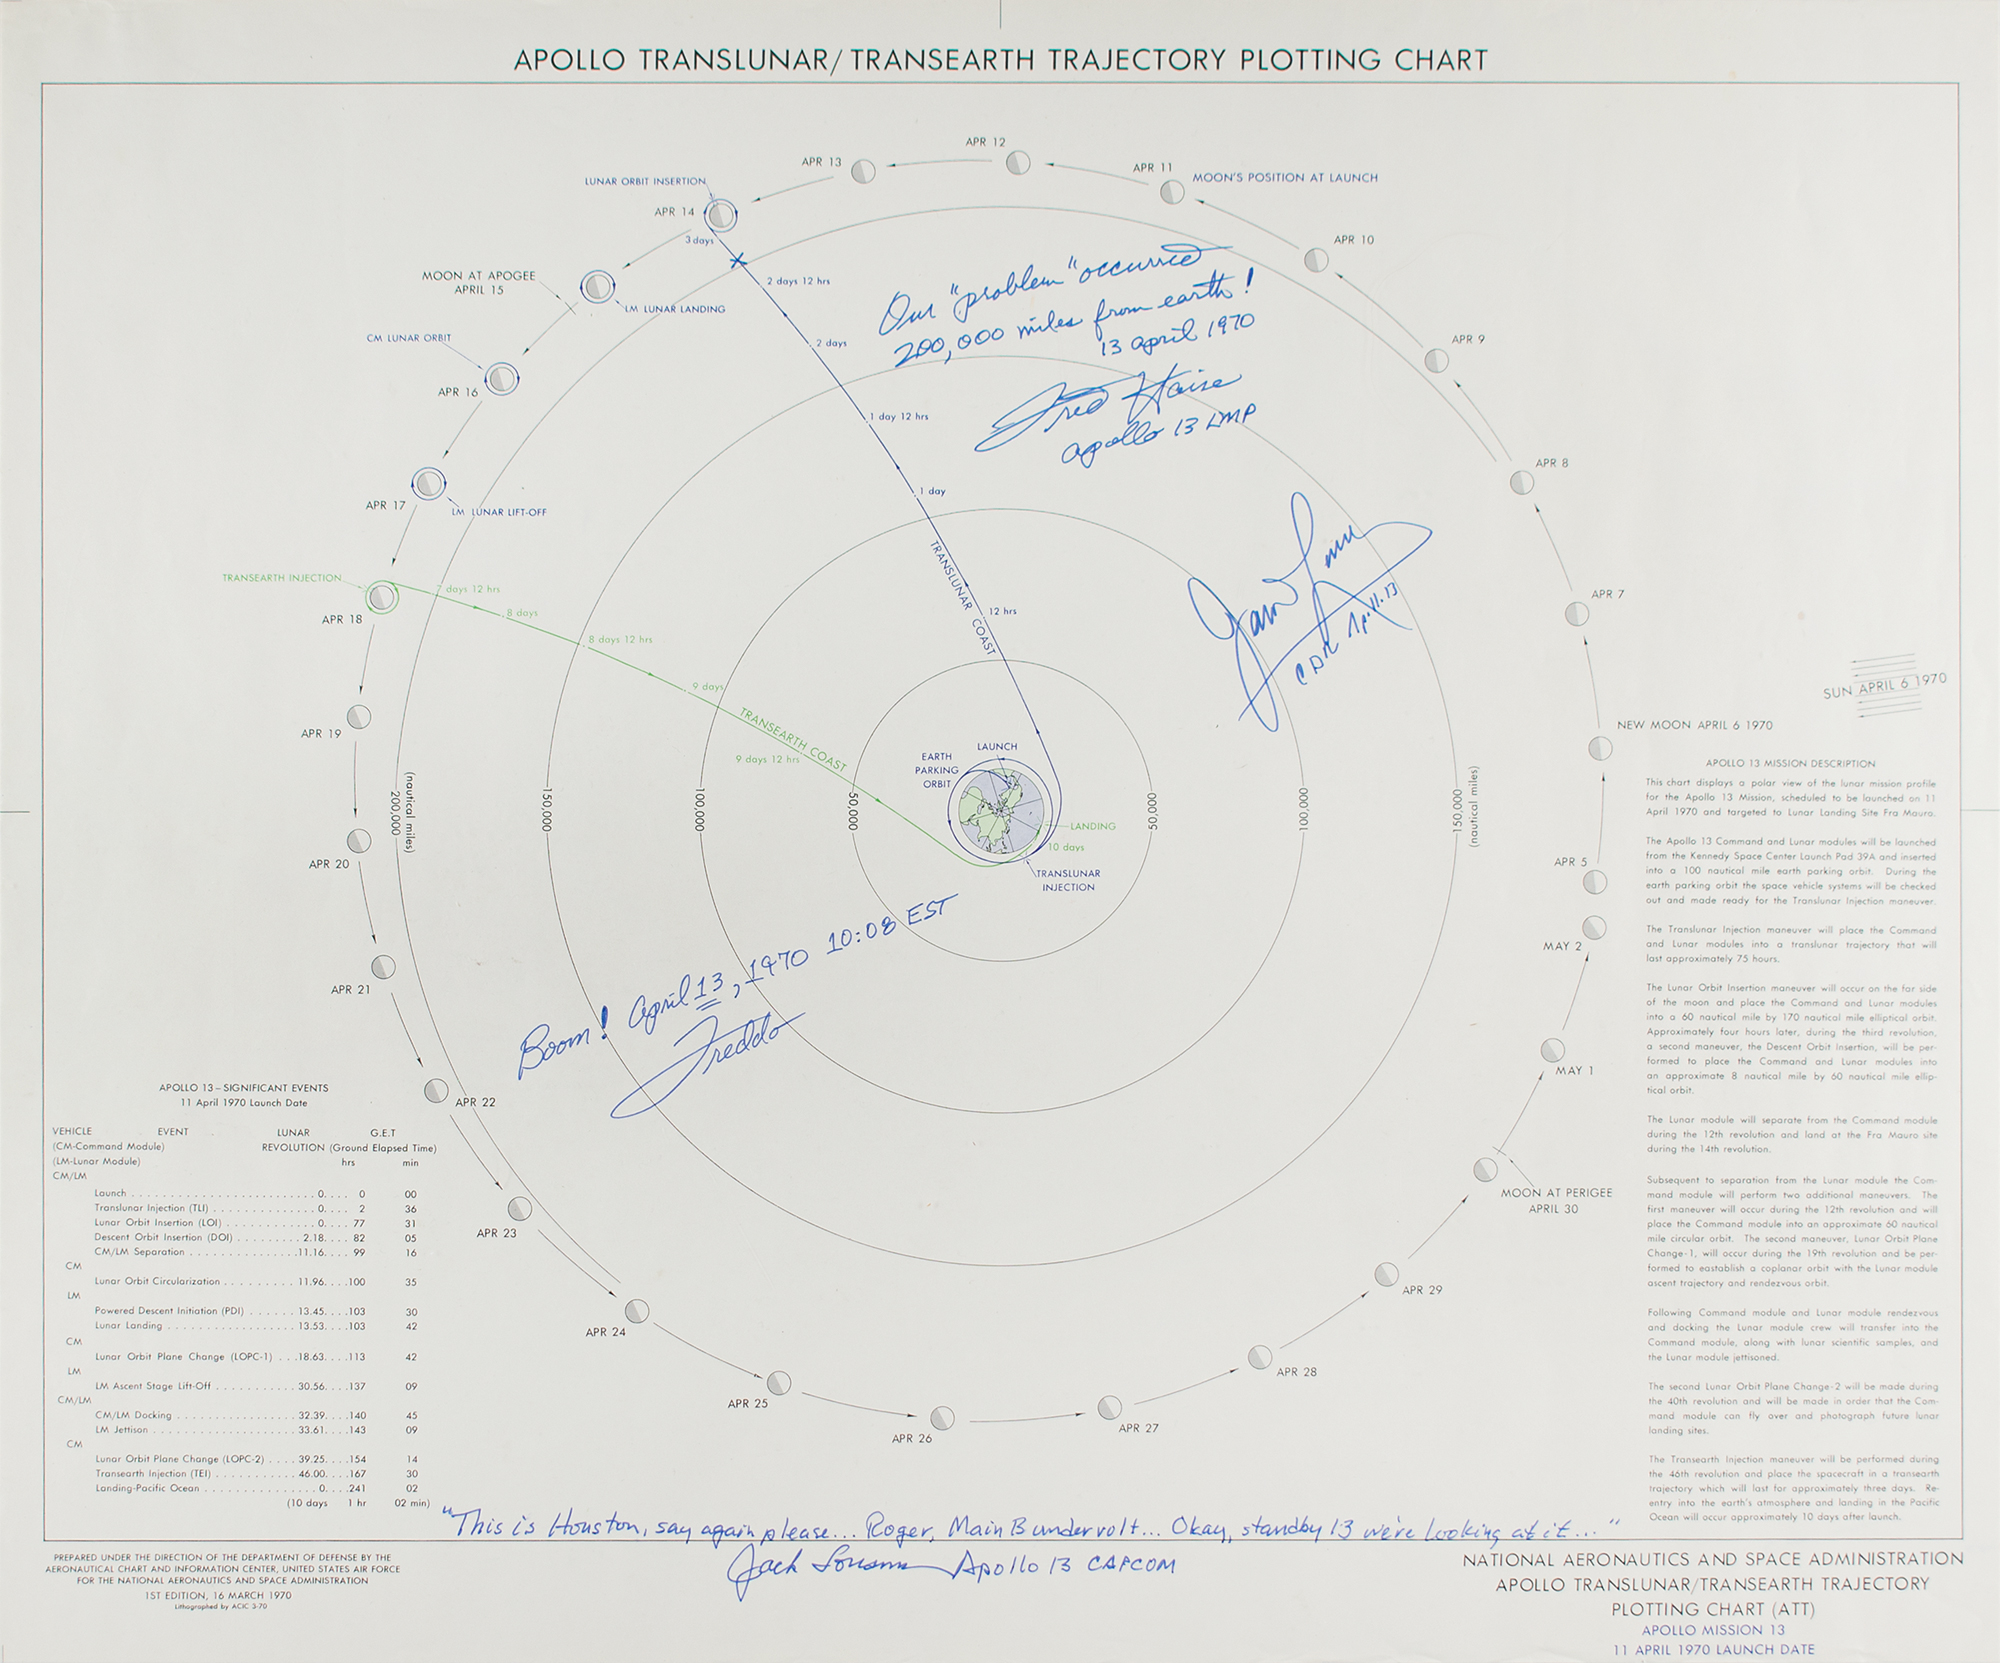 APOLLO TRANSLUNAR/TRANSEARTH TRAJECTORY PLOTTING CHART
APR 12
APR 13
APR 11
MOON'S POSITION AT LAUNCH
LUNAR ORBIT INSERTION
APR 14
3 days
APR 10
MOON AT APOGEE
APRIL 15
2 days 12 hrs
LM LUNAR LANDING
Our "problem" occurred
200,000 miles from earth!
13 april 1970
Fred Haise
apollo 13 LMP
CM LUNAR ORBIT
2 days
APR 9
APR 16
1 day 12 hrs
APR 8
1 day
APR 17
LM LUNAR LIFT-OFF
TRANSLUNAR COAST
TRANSEARTH INJECTION
7 days 12 hrs
8 days
12 hrs
APR 7
APR 18
8 days 12 hrs
CDR Ap. 13
9 days
SUN APRIL 6 1970
NEW MOON APRIL 6 1970
APR 19
TRANSEARTH COAST
9 days 12 hrs
LAUNCH
EARTH
PARKING
ORBIT
(nautical miles)
200,000
150,000
100,000
50,000
50,000
100,000
150,000
(nautical miles)
LANDING
10 days
TRANSLUNAR
INJECTION
APR 20
APR 5
MAY 2
APR 21
MAY 1
Boom! April 13, 1970 10:08 EST
Freddo
APR 22
MOON AT PERIGEE
APRIL 30
APR 23
APR 29
APR 24
APR 28
APR 25
APR 27
APR 26
APOLLO 13 MISSION DESCRIPTION
This chart displays a polar view of the lunar mission profile
for the Apollo 13 Mission, scheduled to be launched on 11
April 1970 and targeted to Lunar Landing Site Fra Mauro.
The Apollo 13 Command and Lunar modules will be launched
from the Kennedy Space Center Launch Pad 39A and inserted
into a 100 nautical mile earth parking orbit. During the
earth parking orbit the space vehicle systems will be checked
out and made ready for the Translunar Injection maneuver.
The Translunar Injection maneuver will place the Command
and Lunar modules into a translunar trajectory that will
last approximately 75 hours.
The Lunar Orbit Insertion maneuver will occur on the far side
of the moon and place the Command and Lunar modules
into a 60 nautical mile by 170 nautical mile elliptical orbit.
Approximately four hours later, during the third revolution,
a second maneuver, the Descent Orbit Insertion, will be per-
formed to place the Command and Lunar modules into
an approximate 8 nautical mile by 60 nautical mile ellip-
tical orbit.
The Lunar module will separate from the Command module
during the 12th revolution and land at the Fra Mauro site
during the 14th revolution.
Subsequent to separation from the Lunar module the Com-
mand module will perform two additional maneuvers. The
first maneuver will occur during the 12th revolution and will
place the Command module into an approximate 60 nautical
mile circular orbit. The second maneuver, Lunar Orbit Plane
Change-1, will occur during the 19th revolution and be per-
formed to eastablish a coplanar orbit with the Lunar module
ascent trajectory and rendezvous orbit.
Following Command module and Lunar module rendezvous
and docking the Lunar module crew will transfer into the
Command module, along with lunar scientific samples, and
the Lunar module jettisoned.
The second Lunar Orbit Plane Change-2 will be made during
the 40th revolution and will be made in order that the Com-
mand module can fly over and photograph future lunar
landing sites.
The Transearth Injection maneuver will be performed during
the 46th revolution and place the spacecraft in a transearth
trajectory which will last for approximately three days. Re-
entry into the earth's atmosphere and landing in the Pacific
Ocean will occur approximately 10 days after launch.
APOLLO 13 – SIGNIFICANT EVENTS
11 April 1970 Launch Date
VEHICLE EVENT LUNAR G.E.T
(CM-Command Module) REVOLUTION (Ground Elapsed Time)
(LM-Lunar Module) hrs min
CM/LM
Launch 0 0 00
Translunar Injection (TLI) 0 2 36
Lunar Orbit Insertion (LOI) 0 77 31
Descent Orbit Insertion (DOI) 2.18 82 05
CM/LM Separation 11.16 99 16
CM
Lunar Orbit Circularization 11.96 100 35
LM
Powered Descent Initiation (PDI) 13.45 103 30
Lunar Landing 13.53 103 42
CM
Lunar Orbit Plane Change (LOPC-1) 18.63 113 42
LM
LM Ascent Stage Lift-Off 30.56 137 09
CM/LM
CM/LM Docking 32.39 140 45
LM Jettison 33.61 143 09
CM
Lunar Orbit Plane Change (LOPC-2) 39.25 154 14
Transearth Injection (TEI) 46.00 167 30
Landing-Pacific Ocean 0 241 02
(10 days 1 hr 02 min)
"This is Houston, say again please... Roger, Main B undervolt... Okay, standby 13 we're looking at it..."
Jack Lousma Apollo 13 CAPCOM
PREPARED UNDER THE DIRECTION OF THE DEPARTMENT OF DEFENSE BY THE
AERONAUTICAL CHART AND INFORMATION CENTER, UNITED STATES AIR FORCE
FOR THE NATIONAL AERONAUTICS AND SPACE ADMINISTRATION
1ST EDITION, 16 MARCH 1970
Lithographed by ACIC 3-70
NATIONAL AERONAUTICS AND SPACE ADMINISTRATION
APOLLO TRANSLUNAR/TRANSEARTH TRAJECTORY
PLOTTING CHART (ATT)
APOLLO MISSION 13
11 APRIL 1970 LAUNCH DATE